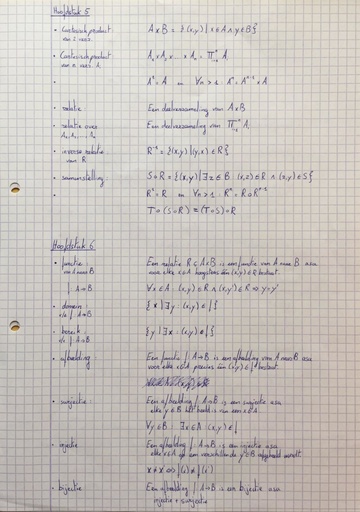 Hoofdstuk 5
• Cartesisch product van 2 verz. A×B = {(x,y) | x∈A ∧ y∈B}
• Cartesisch product van n verz. A₁×A₂×...×Aₙ = Π Aᵢ
• A¹ = A en ∀n>1: Aⁿ = Aⁿ⁻¹ × A
• relatie: Een deelverzameling van A×B
• relatie over A₁, A₂, ..., Aₙ Een deelverzameling van Π Aᵢ
• inverse relatie van R R⁻¹ = {(x,y) | (y,x) ∈ R}
• samenstelling: S∘R = {(x,y) | ∃z∈B (x,z)∈R ∧ (z,y)∈S}
R¹ = R en ∀n>1: Rⁿ = R∘Rⁿ⁻¹
T∘(S∘R) = (T∘S)∘R
Hoofdstuk 6
• functie: Een relatie R ⊆ A×B is een functie van A naar B asa
van A naar B voor elke x∈A hoogstens één (x,y)∈R bestaat.
f: A→B ∀x∈A: (x,y)∈R ∧ (x,y')∈R ⇒ y=y'
• domein: {x | ∃y: (x,y)∈f}
v/e f: A→B
• bereik: {y | ∃x: (x,y)∈f}
v/e f: A→B
• afbeelding Een functie f: A→B is een afbeelding van A naar B asa
voor elke x∈A precies één (x,y)∈f bestaat
• surjectie: Een afbeelding f: A→B is een surjectie asa
elke y∈B het beeld is van een x∈A.
∀y∈B: ∃x∈A: (x,y)∈f
• injectie Een afbeelding f: A→B is een injectie asa
elke x∈A op een verschillende y∈B afgebeeld wordt
x≠x' ⇔ f(x)≠f(x')
• bijectie Een afbeelding f: A→B is een bijectie asa
injectie + surjectie